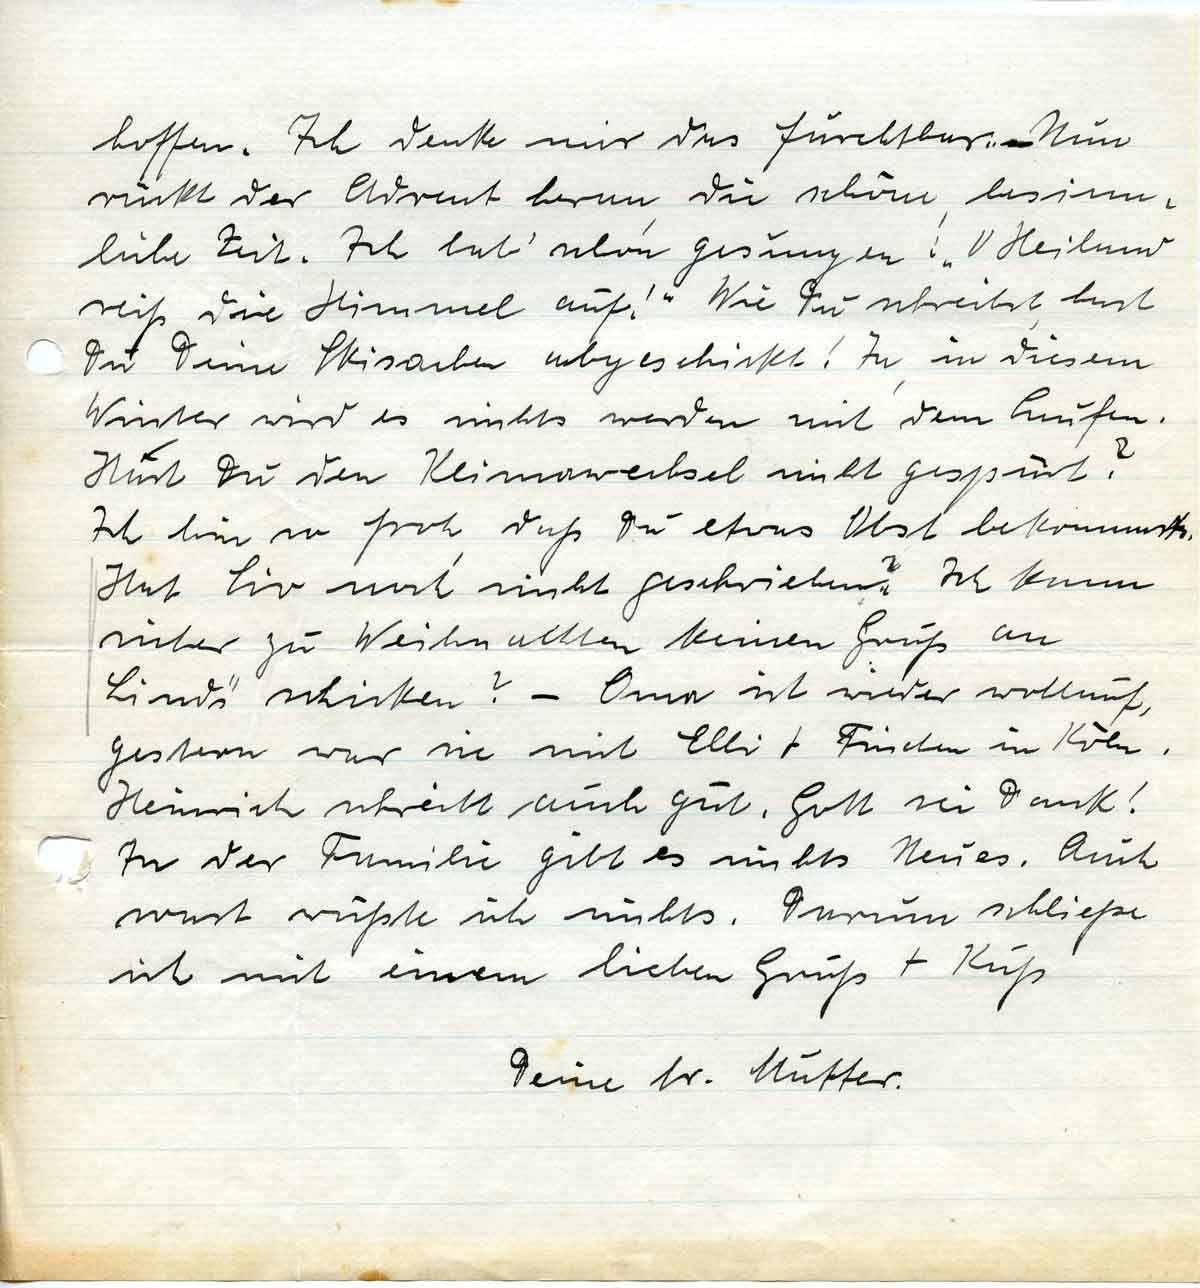 hoffen. Ich denke mir das furchtbar. – Nun
rückt der Advent heran, die schöne, besinn-
liche Zeit. Ich hab' schon gesungen! „O Heiland
reiß die Himmel auf!" Wie Du schreibst, hast
Du Deine Skisachen abgeschickt! Ja, in diesem
Winter wird es nichts werden mit dem Laufen.
Hast Du den Klimawechsel nicht gespürt?
Ich bin so froh, daß Du etwas Obst bekommst.
Hat Liv noch nicht geschrieben? Ich kann
sicher zu Weihnachten keinen Gruß an
Linds schicken? – Oma ist wieder wohlauf,
gestern war sie mit Elli + Finchen in Köln.
Heinrich schreibt auch gut, Gott sei Dank!
In der Familie gibt es nichts Neues. Auch
sonst wüßte ich nichts. Darum schließe
ich mit einem lieben Gruß + Kuß
Deine tr. Mutter.